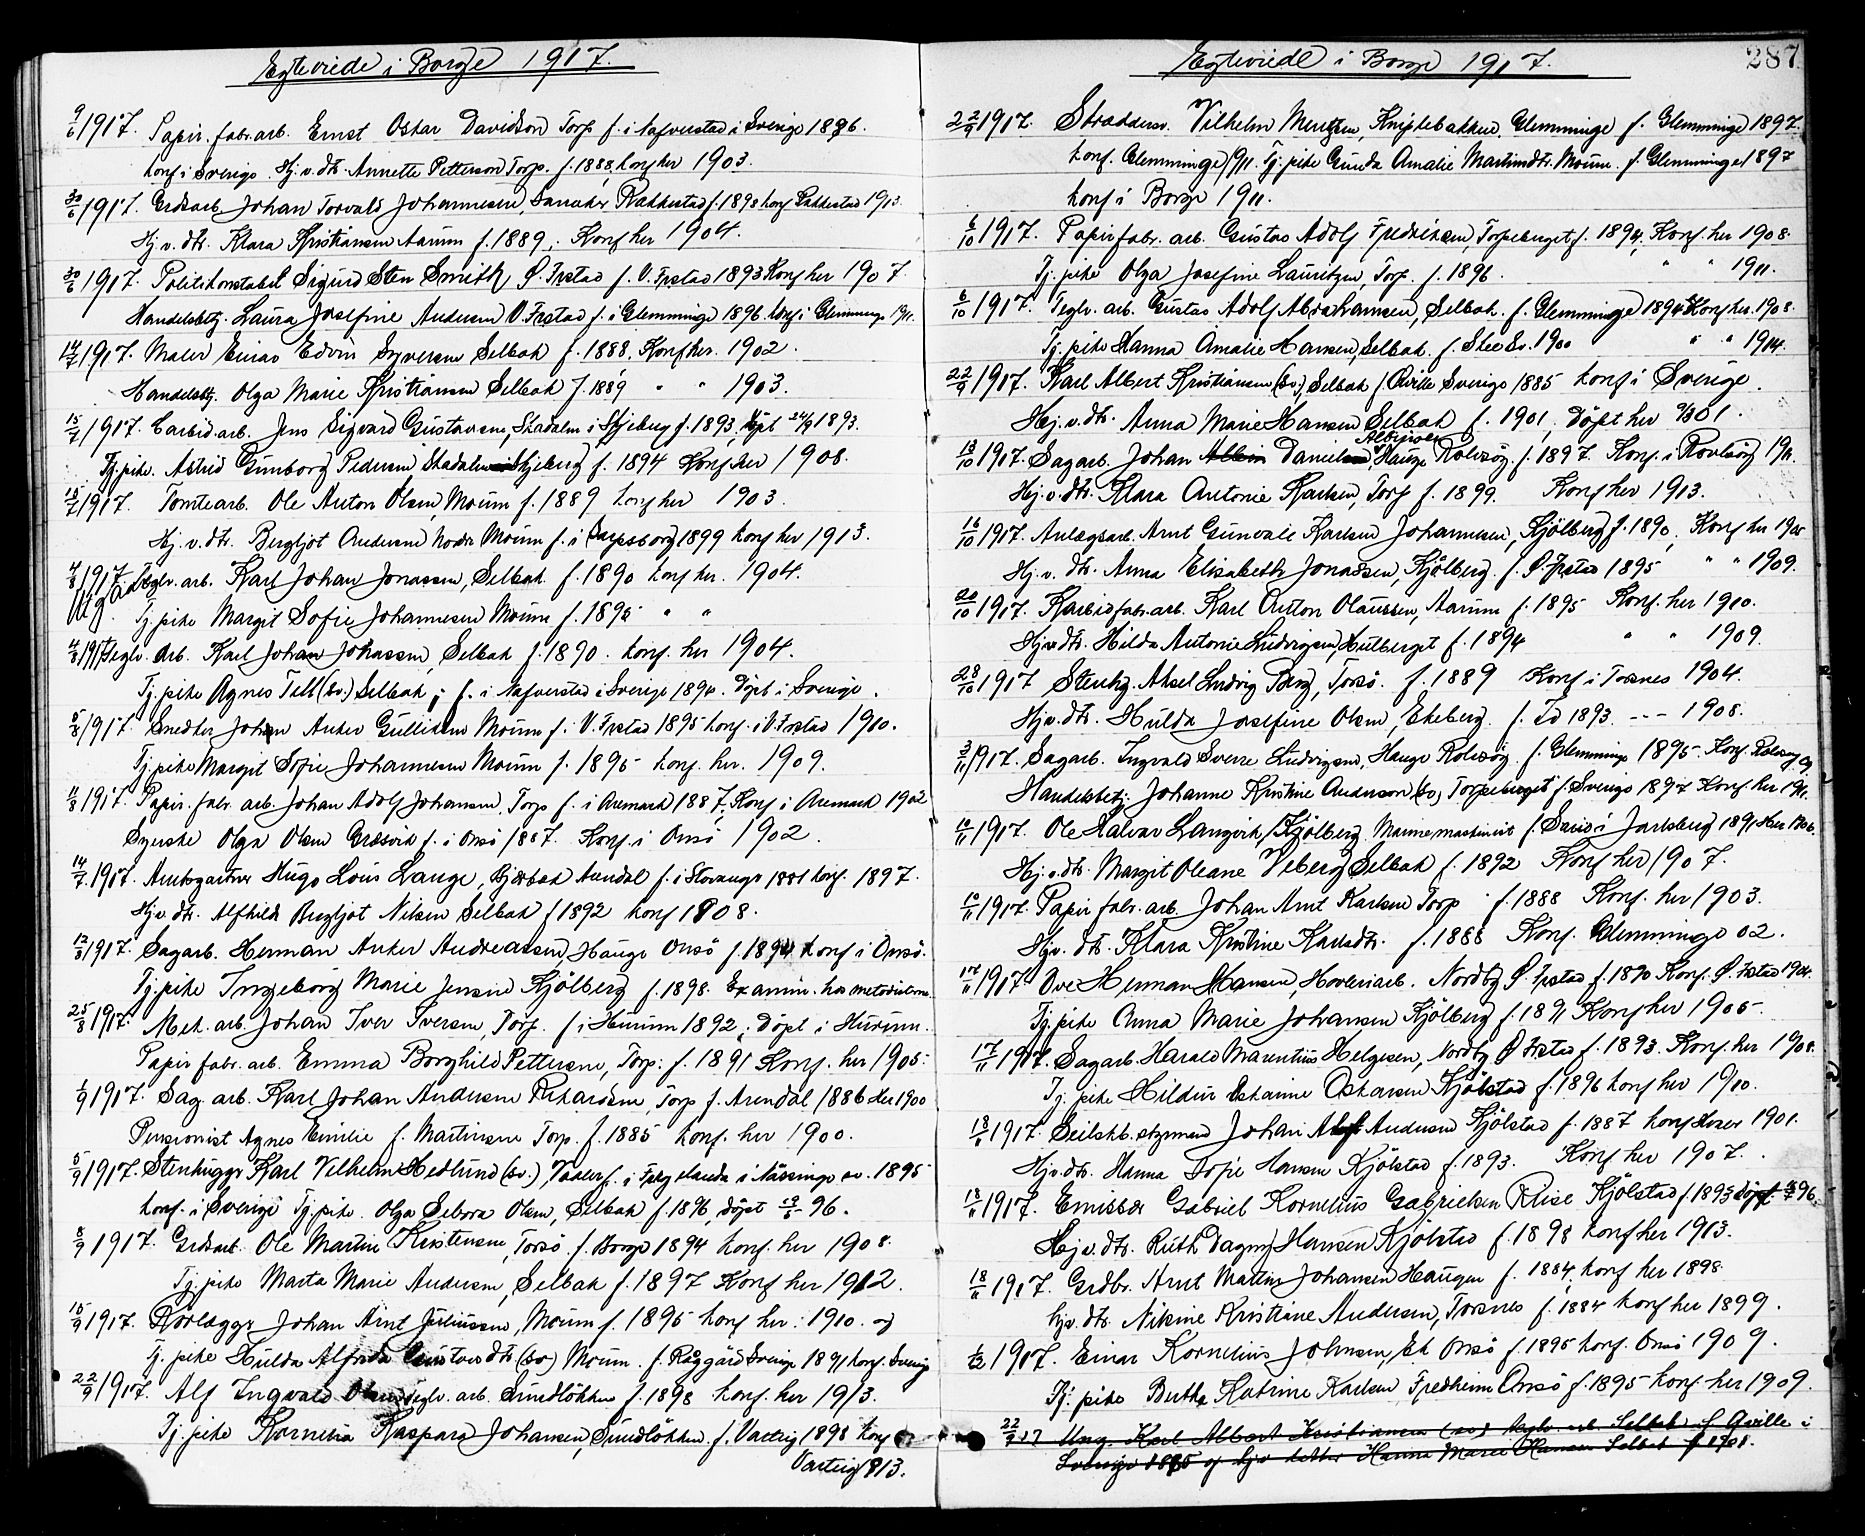 Egteviede i Borge 1917.
9/6 1917. Papir. fabr. arb. Ernst Oskar Davidson Torp f. i Nafverstad i Sverige 1886.
konf. i Sverige. Hj. v. dtr. Annette Petterson Torp. f. 1888, konf her 1903.
30/6 1917. Grdsarb. Johan Torvald Johannesen, Rakkestad f. 1893 konf Rakkestad 1913.
Hj. v. dtr. Klara Kristiansen Aarum f. 1889. Konf her 1904.
30/6 1917. Politikonstabel Sigurd Sten Smith, Ø. Frstad f. V. Frstad 1893 Konf her 1907.
Handelsbtj. Laura Josefine Andersen V. Frstad f. i Glemminge 1896. konf i Glemminge 1911.
14/7 1917. Maler Einar Edvin Syversen Selbak f. 1888, Konf her. 1902.
Handelsbtj. Olga Marie Kristiansen Selbak f. 1889 " " 1903.
15/7 1917. Carbid arb. Jens Sigvard Gustavsen, Skadalen i Skjeberg f. 1893, døpt 24/9 1893.
Tj. pike. Astrid Gunborg Pedersen Skadalen i Skjeberg f. 1894 Konf her 1908.
15/7 1917. Tomtearb. Ole Anton Olsen, Moum f. 1889 konf her 1903.
Hj. v. dtr. Bergljot Andersen Nordre Moum f. i Sarpsborg 1899 konf her 1913.
4/8 1917 Teglv. arb. Karl Johan Jonassen, Selbak. f. 1890 konf her. 1904.
Utgaar. Tj. pike Margit Sofie Johannesen Moum f. 1895 " "
4/8 1917 Teglv. arb. Karl Johan Jonassen, Selbak f. 1890. konf. her 1904.
Tj. pike Agnes Tell (sv.) Selbak, f. i Nafverstad i Sverige 1894. Døpt i Sverige.
5/8 1917. Smedker Johan Anker Gulliksen Moum f. V. Frstad 1895 konf. i V. Frstad 1910.
Tj. pike Margit Sofie Johannesen Moum f. 1895 konf. her. 1909.
11/8 1917. Papir. fabr. arb. Johan Adolf Johansen, Torp f. i Aremark 1887, Konf i Aremark 1902
Syerske Olga Olsen Græsvik f. i Onsö 1887. Konf. i Onsö 1902.
14/7 1917. Amtsgartner Hugo Louis Lange, Bjørbæk Arendal f. i Stavanger 1881 konf. 1897.
Hj. v. dtr. Alfhild Bergljot Nilsen Selbak f 1892 konf 1908.
12/8 1917. Sagarb. Herman Anker Andreassen, Hauge Onsö f. 1894 konf i Onsö.
Tj. pike Ingeborg Marie Jensen Kjölberg f. 1898. Examin. hos metodisterne
25/8 1917. Mek. arb. Johan Iver Iversen, Torp. f. i Hurum 1892, døpt i Hurum.
Papir fabr. arb. Emma Borghild Pettersen, Torp. f. 1891 Konf. her 1905.
1/9 1917. Sag. arb. Karl Johan Andersen Rikardsen, Torp f. Arendal 1886 Her 1900
Pensionist Agnes Emilie f. Martinsen Torp. f. 1885 konf. her 1900.
5/9 1917. Stenhugger Karl Vilhelm Hedlund (sv.), f. i i Nässinge sv. 1895
konf. i Sverige Tj. pike. Olga Selvora Olsen, Selbak f. 1896, döpt 96.
8/9 1917. Grdsarb. Ole Martin Kristensen, Torsö f. Borge 1894 konf. her 1908.
Tj. pike Marta Marie Andersen, Selbak f. 1897 Konf her 1912.
15/9 1917. Rörlægger Johan Arnt Juliussen, Moum f. 1895 konf her. 1910. og
Tj. pike Hulda Alfrida Gustavsdtr. (sv) Moum. f. Råggärd Sverige 1891 konf. Sverig
22/9 1917. Alf Ingvald Olsen teglv. arb. Sundlökken f. 1898 konf. her 1913.
Tj. pike Kornelia Kaspara Johansen, Sundlökken f. Varteig 1898 konf
Varteig 1913.
Egteviede i Borge 1917. 287
22/9 1917. Skræddersv. Vilhelm Mentzen, Kniplebakken, Glemminge f. Glemminge 1897.
konf. Glemminge 1911. Tj. pike Gunda Amalie Martinsdtr. Moum. f. Glemminge 1897
konf i Borge 1911.
6/10 1917. Papirfabr. arb. Gustav Adolf Fredriksen, Torpeberget f. 1894. Konf. her 1908.
Tj. pike Olga Josefine Lauritzen, Torp. f. 1896. " " 1911.
6/10 1917. Teglv. arb. Gustav Adolf Abrahamsen, Selbak. f. Glemminge 1894 Konf her. 1908.
Tj. pike Hanna Amalie Hansen, Selbak. f. Skee Sv. 1900 " " 1914.
22/9 1917. Karl Albert Kristiansen (sv.) Selbak f. Qville Sverige 1885 konf i Sverige.
Hj. v. dtr. Anna Marie Hansen Selbak f. 1901, döpt her 01.
13/10 1917. Sagarb. Johan Albin Albinsen Danielsen, Hauge Rolvsöy. f. 1897. Konf. i Rovlsöy 1911.
Hj. v. dtr. Klara Antonie Karlsen, Torp f. 1899. Konf her 1913.
16/10 1917. Anlægsarb. Arnt Gunvald Karlsen Johannesen, Kjölberg f. 1890, Konf her 1905
Hj. v. dtr. Anna Elisabeth Jonassen, Kjölberg. f. Ø. Frstad 1895 " " 1909.
20/10 1917. Karbidfabr. arb. Karl Anton Olaussen, Aarum f. 1895 Konf. her 1910.
Hj v dtr. Hilda Antonie Ludvigsen, Hulberget f. 1894 " " 1909.
28/10 1917 Stenhg. Aksel Ludvig Berg, Torsö. f. 1889 Konf i Torsnes 1904.
Hj v. dtr. Hulda Josefine Olsen, Ekeberg. f. Id 1893 --- 1908.
3/11 1917. Sagarb. Ingvald Sverre Ludvigsen, Hauge Rolvsöy. f. Glemminge 1895. Konf. Rolvsøy 09
Handelsbetj. Johanne Kristine Anderson (sv) Torpeberget f. Sverige 1897 Konf her 1911.
10/11 1917. Ole Halvar Langvik, Kjölberg. Marinemaskinist f. i Jarlsberg 1891 Her 1906.
Hj. v. dtr. Margit Oleane Veberg Selbak f. 1892 Konf her 1907.
10/11 1917. Papir fabr. arb. Johan Arnt Karlsen Torp f. 1888 Konf. her 1903.
Hjv. dtr. Klara Kristine Karlsdtr. f. 1888 Konf. Glemminge 02.
17/11 1917. Ove Herman Hansen, Hovleriarb. Nordby Ø. Frstad f. 1890 Konf. Ø. Frstad 1904.
Tj. pike Anna Marie Johansen Kjölberg f. 1891 Konf her 1905.
17/11 1917. Sagarb. Harald Marentius Helgesen, Nordby Ø Frstad f. 1893. Konf. her 1908.
Tj. pike Hildur Oskarine Oskarsen Kjölstad f. 1896 konf her 1910.
18/11 1917. Seilskb. styrmand Johan Alf Andersen Kjölstad f. 1887 konf 1901.
Hjv. dtr. Hanna Sofie Hansen Kjölstad f. 1893. Konf her 1907.
18/11 1917. Emissær Gabriel Kornelius Gabrielsen Kjölstad f. 1895 döpt 96.
Hj v. dtr. Ruth Dagny Hansen Kjölstad f. 1898 konf her 1913.
18/11 1917. Grdbr. Arnt Martin Johansen Haugen f. 1884, konf her 1898.
hjv. dtr. Niksine Kristiane Andersen, Torsnes f. 1884 konf her 1899.
1/12 1917. Einar Kornelius Johnsen, Ek Onsö f. 1895 konf. Onsö 1909.
Tj. pike Berthe Katrine Karlsen Fredheim Onsö f. 1895 konf her 1909.
22/9 17 Ung. Karl Albert Kristiansen (sv) teglv. arb Selbak f. Qville i
Sverige 1885 og hjv datter Hanna Marie Hansen Selbak f 1901.